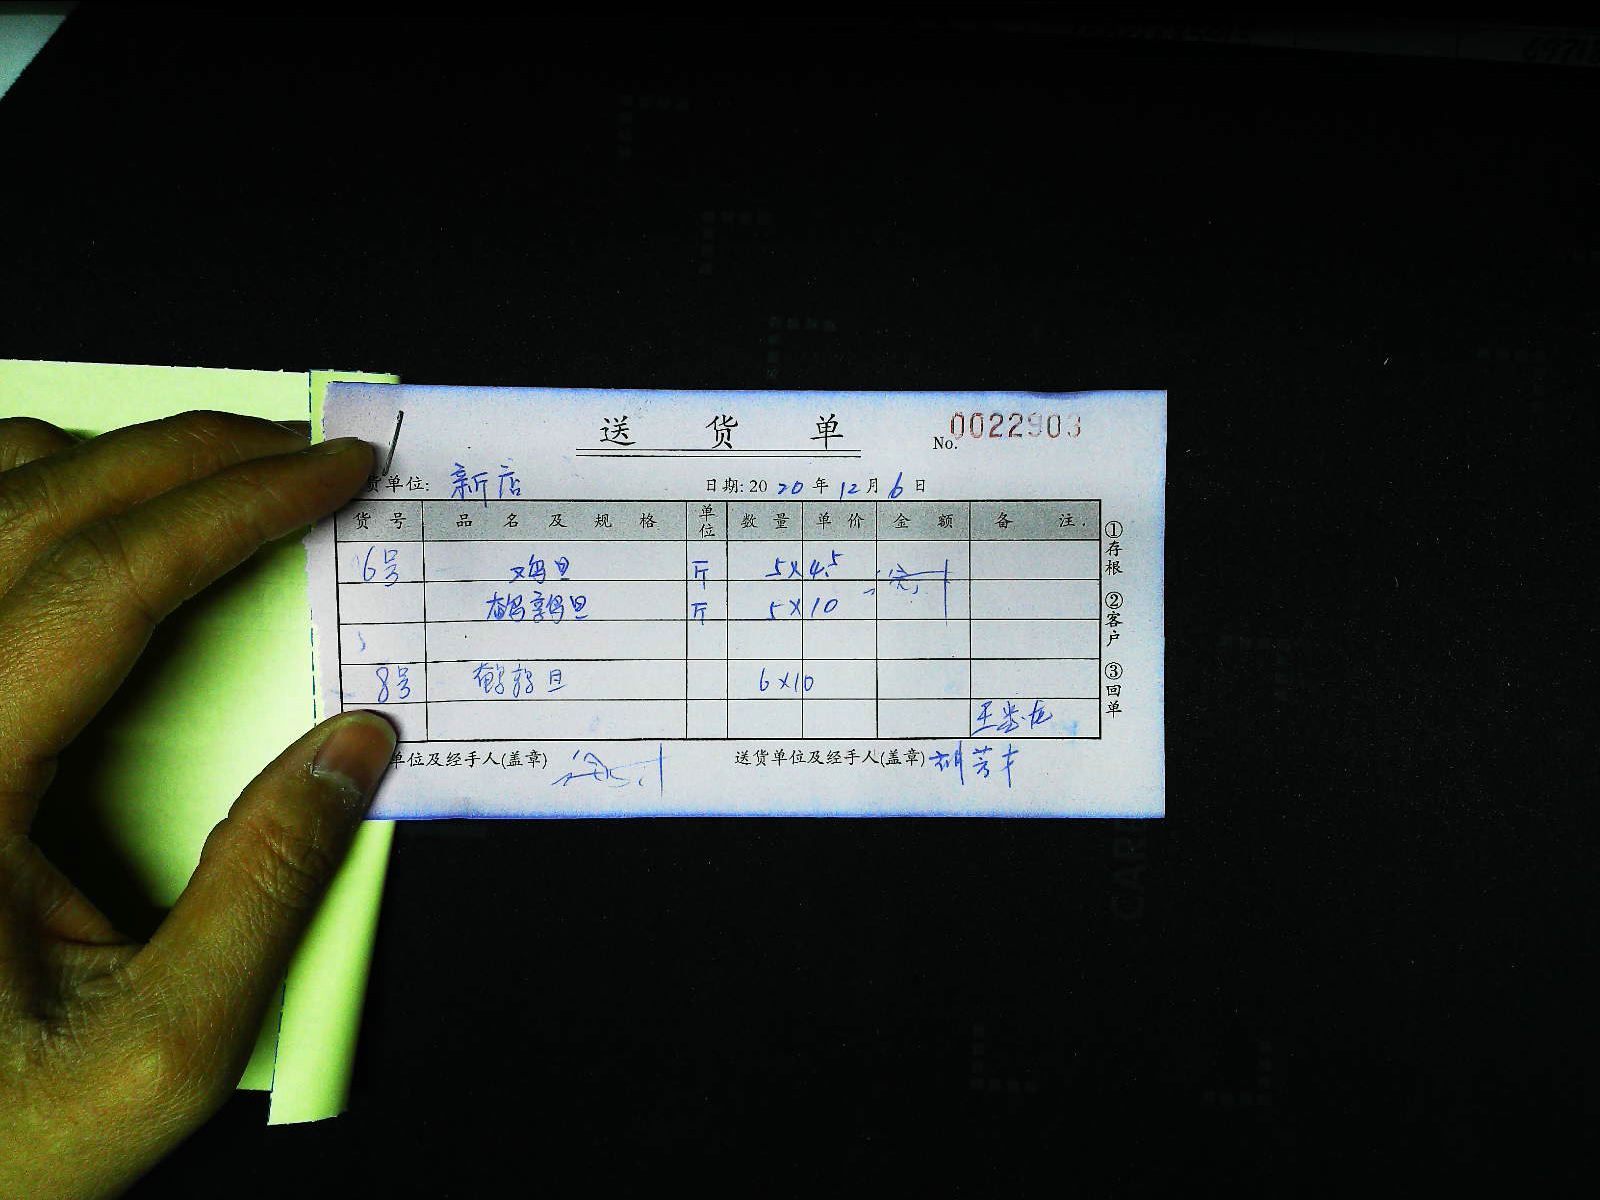 送 货 单
No. 0022903
货单位: 新店 日期: 20 20 年 12 月 6 日
货号 品名及规格 单位 数量 单价 金额 备注
6号 鸡旦 斤 5×4.5
鹌鹑旦 斤 5×10
8号 鹌鹑旦 6×10
单位及经手人(盖章) 送货单位及经手人(盖章) 胡芳丰
①存根 ②客户 ③回单